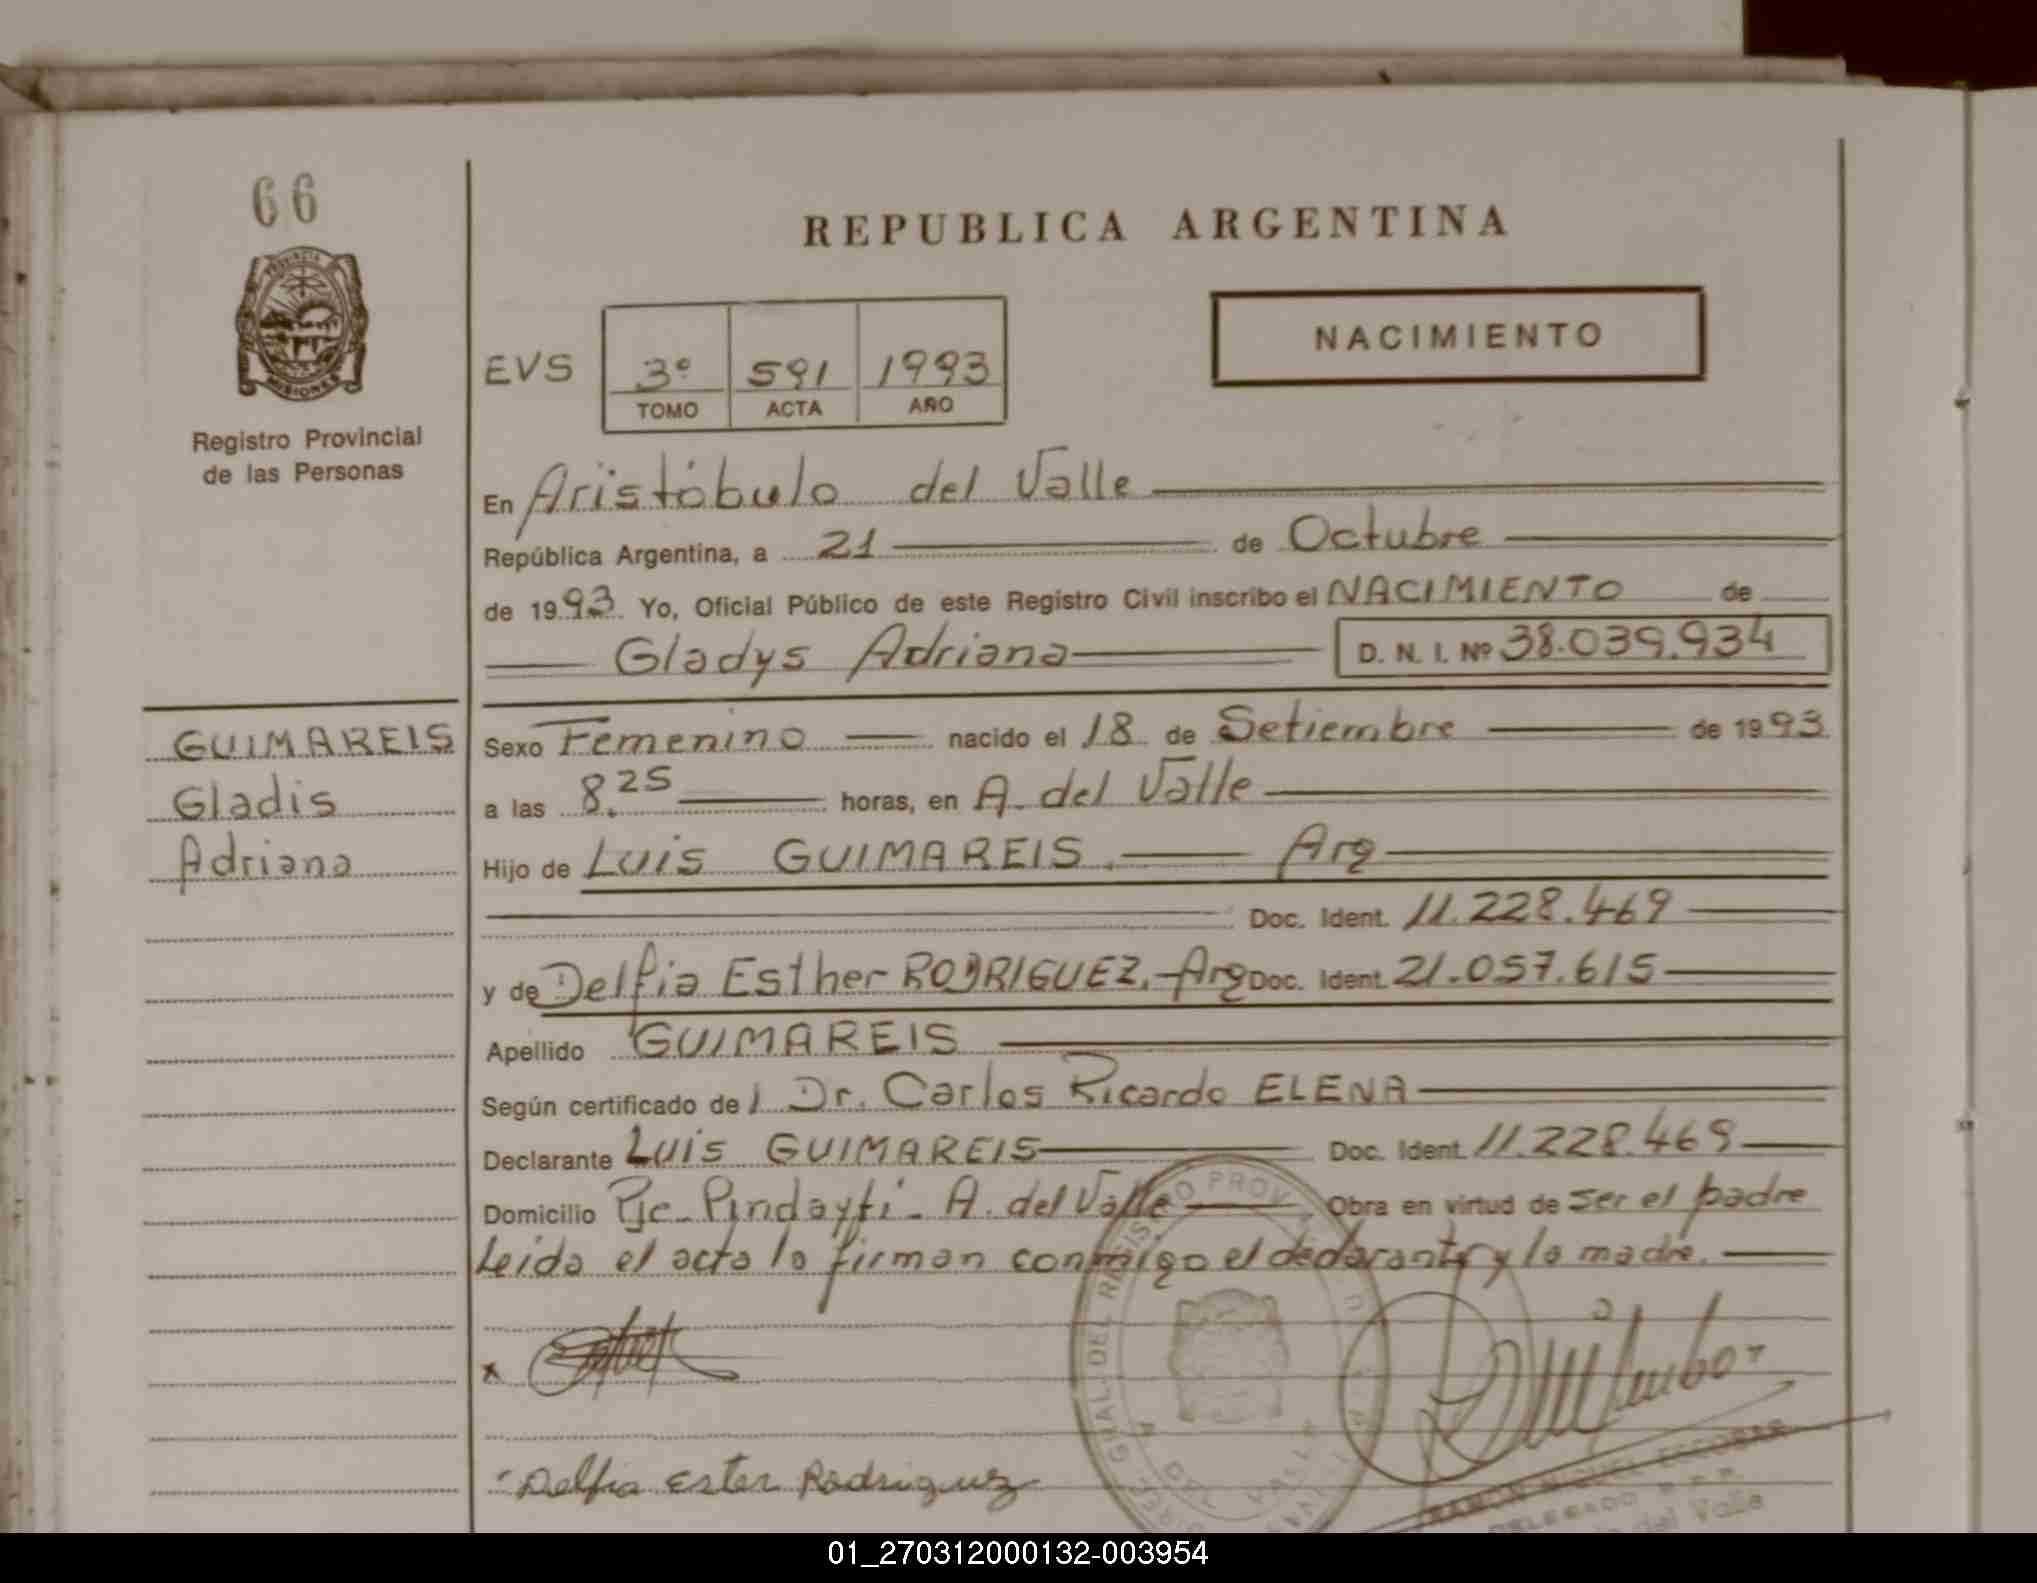 66
PROVINCIA DE
MISIONES
Registro Provincial
de las Personas
REPUBLICA ARGENTINA
NACIMIENTO
EVS 3º 591 1993
TOMO ACTA AÑO
En Aristóbulo del Valle
República Argentina, a 21 de Octubre
de 1993 Yo, Oficial Público de este Registro Civil inscribo el NACIMIENTO de
Gladys Adriana D. N. I. Nº 38.039.934
GUIMAREIS
Gladis
Adriana
Sexo Femenino nacido el 18 de Setiembre de 1993
a las 8.25 horas, en A. del Valle
Hijo de Luis GUIMAREIS. Arg
Doc. Ident. 11.228.469
y de Delfia Esther RODRIGUEZ.-Arg Doc. Ident. 21.057.615
Apellido GUIMAREIS
Según certificado del Dr. Carlos Ricardo ELENA
Declarante Luis GUIMAREIS Doc. Ident. 11.228.469
Domicilio Pje- Pindayti- A. del Valle Obra en virtud de ser el padre
Leida el acta la firman conmigo el declarante y la madre.
x
Delfia Ester Rodriguez
RAMON MIGUEL ESCOBAR
DELEGADO R.P.P.
del Valle
01_270312000132-003954